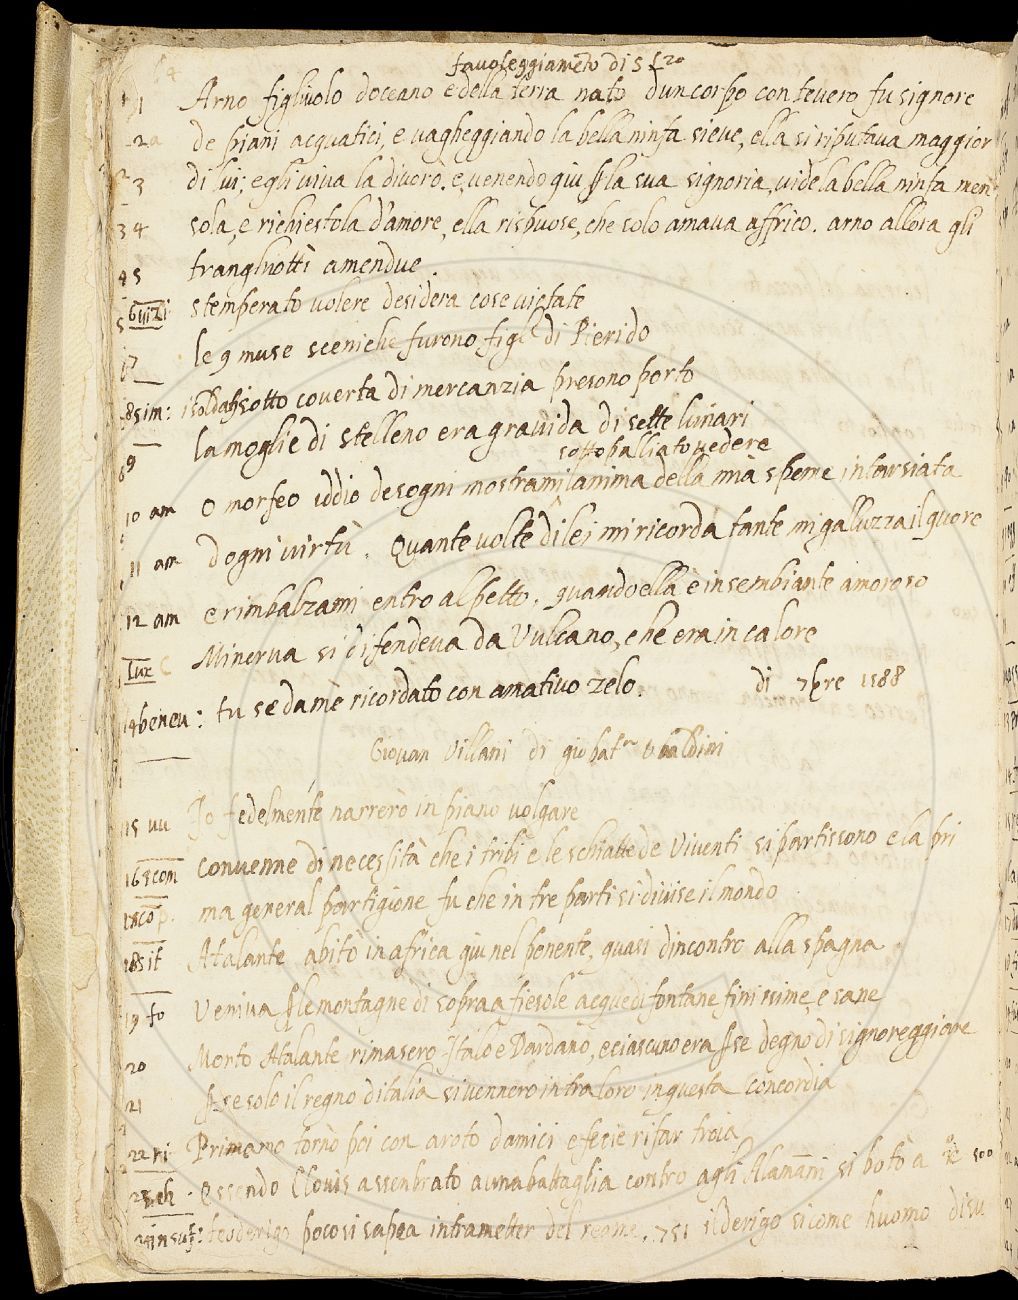 favoleggiameto di S Lzo
1 Arno figliuolo doceano e della terra nato d'un corpo con tevero fu signore
2 de piani acquatici, e vagheggiando la bella ninfa sieve, ella si riputava maggior
3 di lui; e gli viva la divorò. e, venendo giu la sua signoria, vide la bella ninfa men
4 sola, e richiestola d'amore, ella rispuose, che solo amava affrico. arno allora gli
5 tranghiottì amendue.
6 vizi stemperato volere desidera cose vietate
7 le 9 muse sceniche furono figle di Pierido
8 sim: i soldati sotto coverta di mercanzia presono porto
9 la moglie di stelleno era gravida di sette lunari
sotto palliato vedere
10 am O morfeo iddio de sogni mostrami lanima della mia speme intarsiata
11 am dogni virtù. Quante volte di lei mi ricorda tante mi galluzza il quore
12 am e rimbalzami entro al petto. quando ella è in sembiante amoroso
Minerva si difendeva da Vulcano, che era in calore
14 benev: tu se da me ricordato con amativo zelo. di 7bre 1588
Giovan Villani di gio bat.ª Ubaldini
15 uu Io fedelmente narrerò in piano volgare
16 con convenne di necessità che i tribi e le schiatte de Viventi si partissono e la pri
ma general partigione fu che in tre parti si divise il mondo
18 sit Atalante abitò in africa giu nel ponente, quasi dincontro alla spagna
19 fo Veniva le montagne di sopra a fiesole acque di fontane finissime, e sane
20 Morto Atalante rimasero Italo e Dardano, e ciascuno era se degno di signoreggiare
21 se solo il regno ditalia si vennero intra loro in questa concordia
22 ri Primamo tornò poi con aroto damici e fecie rifar troia
23 Essendo Clovis assenbrato a una battaglia contro agli Alamanni si botò a 500
24 teoderigo poco si sapea intrametter del reame. 751 ilderigo si come huomo disu